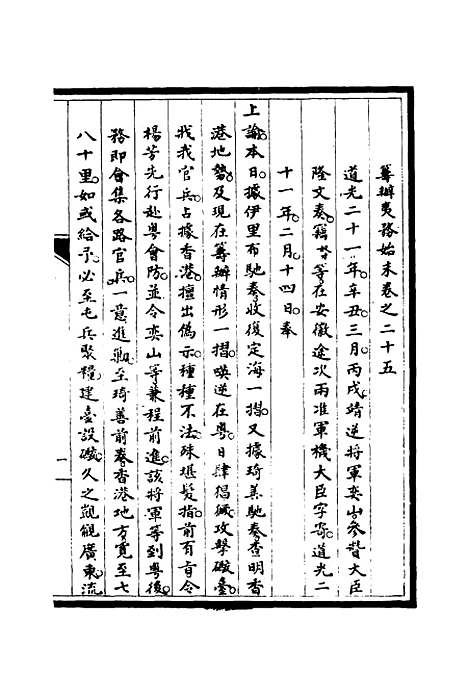 籌辦夷務始末卷之二十五
道光二十一年。辛丑。三月。丙戌。靖逆將軍奕山。參贊大臣
隆文奏。竊等在安徽途次。兩准軍機大臣字寄。道光二
十一年。二月。十四日。奉
上諭。本日。據伊里布馳奏。收復定海一摺。又據琦善馳奏。查明香
港地勢。及現在籌辦情形一摺。𠸄逆在粵。日肆猖獗。攻擊礮臺。
戕我官兵。占據香港。擅出偽示。種種不法。殊堪髮指。前有旨令
楊芳先行赴粵會防。並令奕山等兼程前進。該將軍等到粵後。
務即會集各路官兵。一意進勦。至琦善前奏香港地方。寬至七
八十里。如或給予。必至屯兵聚糧。建臺設礮。久之覬覦廣東。流
一